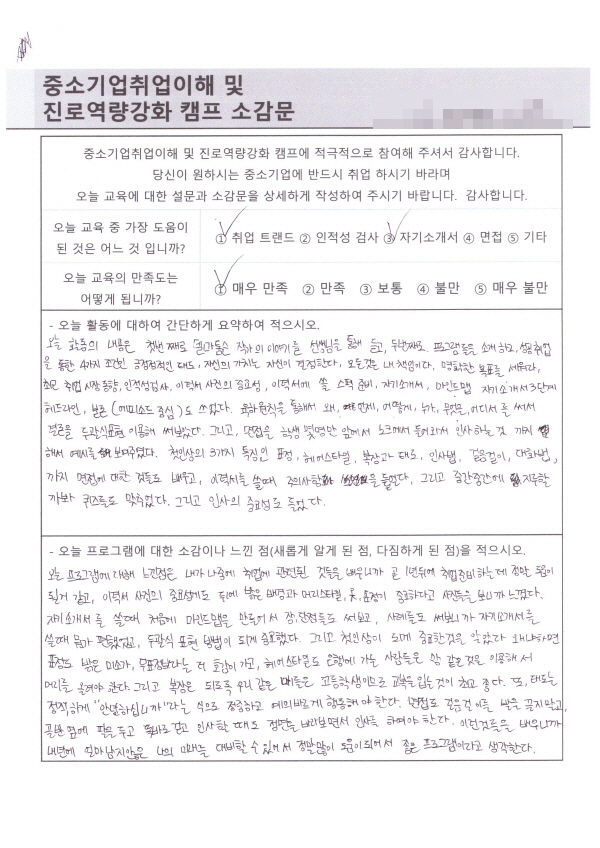 중소기업취업이해 및
진로역량강화 캠프 소감문
중소기업취업이해 및 진로역량강화 캠프에 적극적으로 참여해 주셔서 감사합니다.
당신이 원하시는 중소기업에 반드시 취업 하시기 바라며
오늘 교육에 대한 설문과 소감문을 상세하게 작성하여 주시기 바랍니다. 감사합니다.
오늘 교육 중 가장 도움이
된 것은 어느 것 입니까?
① 취업 트랜드 ② 인적성 검사 ③ 자기소개서 ④ 면접 ⑤ 기타
오늘 교육의 만족도는
어떻게 됩니까?
① 매우 만족 ② 만족 ③ 보통 ④ 불만 ⑤ 매우 불만
- 오늘 활동에 대하여 간단하게 요약하여 적으시오.
오늘 활동의 내용은 첫번째로 작가의 이야기를 선생님을 통해 듣고, 두번째로 프로그램을 소개하고, 성공취업
을 통한 4가지 조건인 긍정적인 태도, 자신의 가치는 자신이 결정한다, 모든것은 내 책임이다, 명확한 목표를 세워라,
최근 취업 시장 동향, 인적성검사, 이력서 사진의 중요성, 이력서에 쓸 스펙 준비, 자기소개서, 마인드맵 자기소개서 3단계
헤드라인, 본론 (에피소드 중심)도 쓰였다. 육하원칙을 통해서 왜, 언제, 어떻게, 누가, 무엇을, 어디서 를 써서
결론을 두괄식표현 이용해 써보았다. 그리고, 면접을 학생 몇명만 앞에서 노크에서 들어와서 인사하는 것 까지
해서 예시를 보여주었다. 첫인상의 8가지 특징인 표정, 헤어스타일, 복장과 태도, 인사법, 걸음걸이, 대화법,
까지 면접에 대한 것들도 배우고, 이력서를 쓸때 주의사항 을 들었다, 그리고 중간중간에 지루할
까봐 퀴즈들도 맞추었다. 그리고 인사의 중요성도 들었다.
- 오늘 프로그램에 대한 소감이나 느낀 점(새롭게 알게 된 점, 다짐하게 된 점)을 적으시오.
오늘 프로그램에 대해 느낀점은 내가 나중에 취업에 관련된 것들을 배우니까 곧 1년뒤에 취업준비하는데 정말 도움이
될거 같고, 이력서 사진의 중요성에도 뒤에 밝은 배경과 머리스타일, 옷, 표정이 중요하다고 사진들을 보니까 느꼈다.
자기소개서를 쓸때 처음에 마인드맵을 만들어서 장, 단점들도 써보고, 사례들도 써보니까 자기소개서를
쓸때 뭔가 편했었고, 두괄식 표현 방법이 되게 중요했다. 그리고 첫인상이 되게 중요한것을 알았다 왜냐하면
표정도 밝은 미소가, 무표정보다는 더 호감이 가고, 헤어스타일도 은행에 가는 사람들은 삔 같은것을 이용해서
머리를 올려야 한다. 그리고 복장은 되도록 우리 같은 애들은 고등학생이므로 교복을 입는것이 최고 좋다. 또, 태도는
정직하게 "안녕하십니까" 라는 식으로 정중하고 예의바르게 행동해야 한다. 면접도 걸음걸이를 발을 끌지말고,
골반 옆에 팔을 두고 똑바로 걷고 인사할 때도 정면을 바라보면서 인사를 하여야 한다. 이런것들을 배우니까
내년에 얼마 남지않은 나의 미래를 대비할 수 있어서 정말많이 도움이 되어서 좋은 프로그램이라고 생각한다.